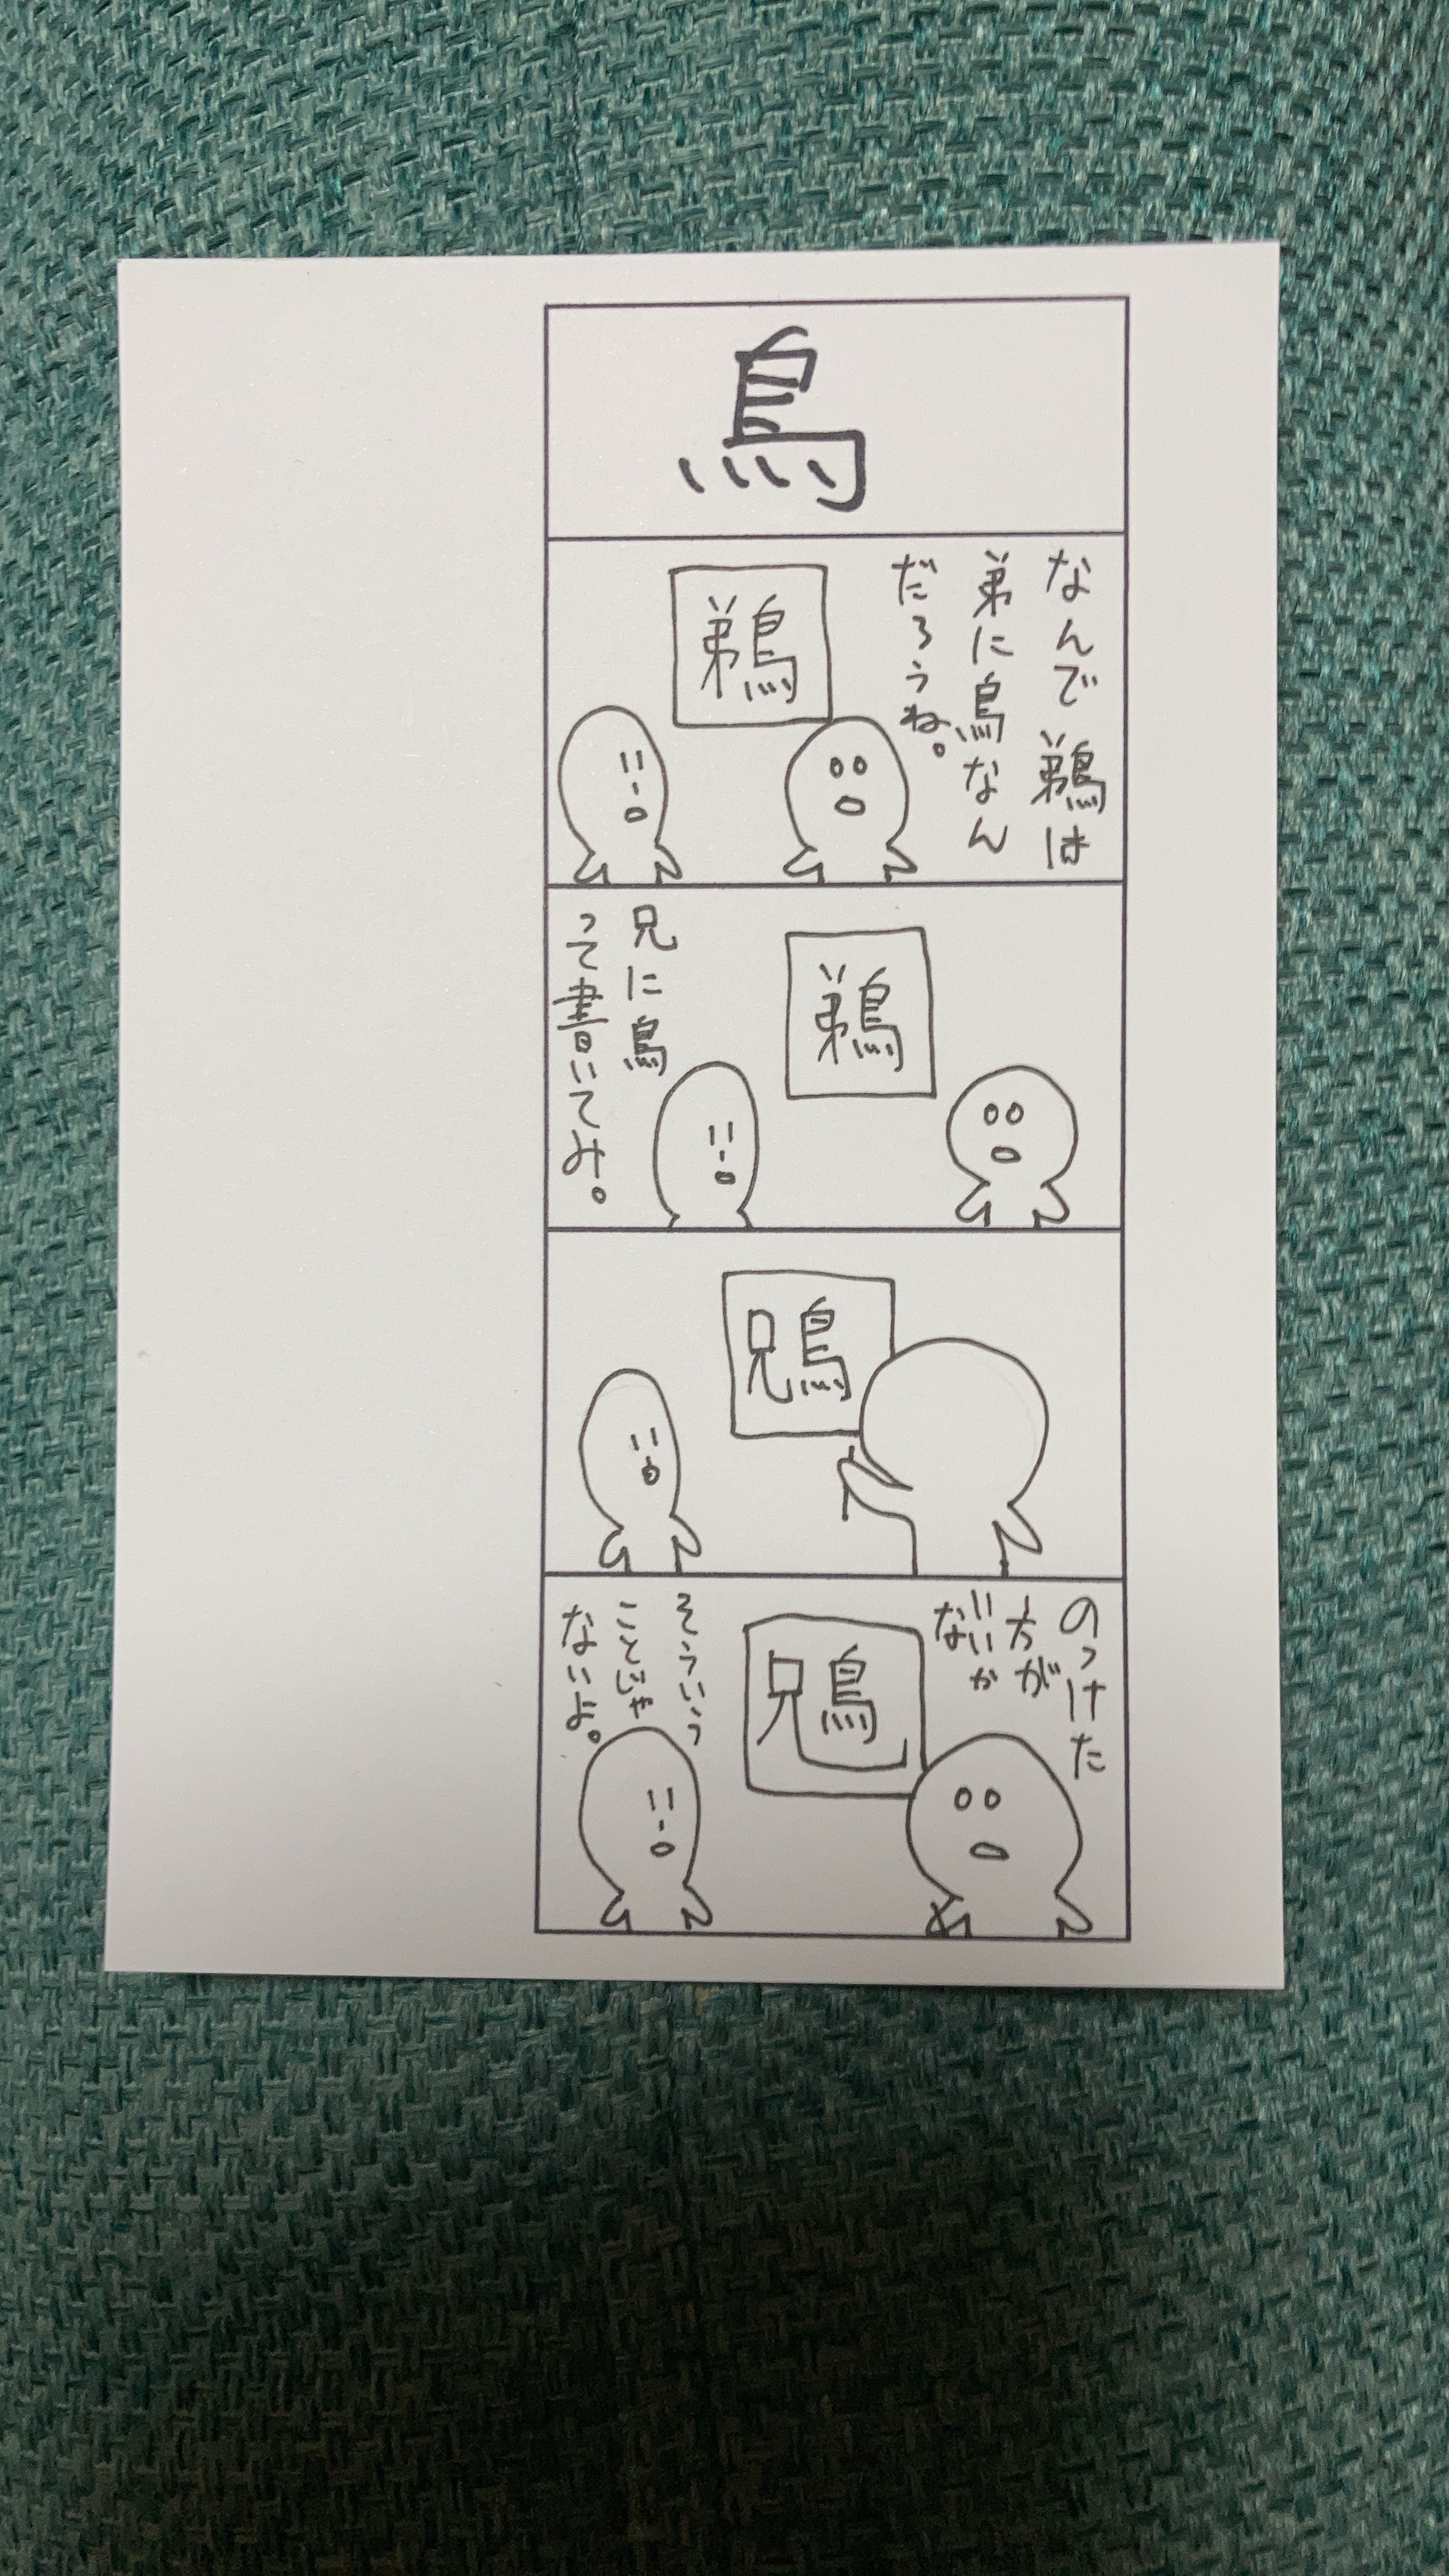 鳥
なんで鵜は
弟に鳥なん
だろうね。
鵜
鵜
兄に鳥
って書いてみ。
兄鳥
のっけた
方が
いいか
な
兄鳥
そういう
ことじゃ
ないよ。